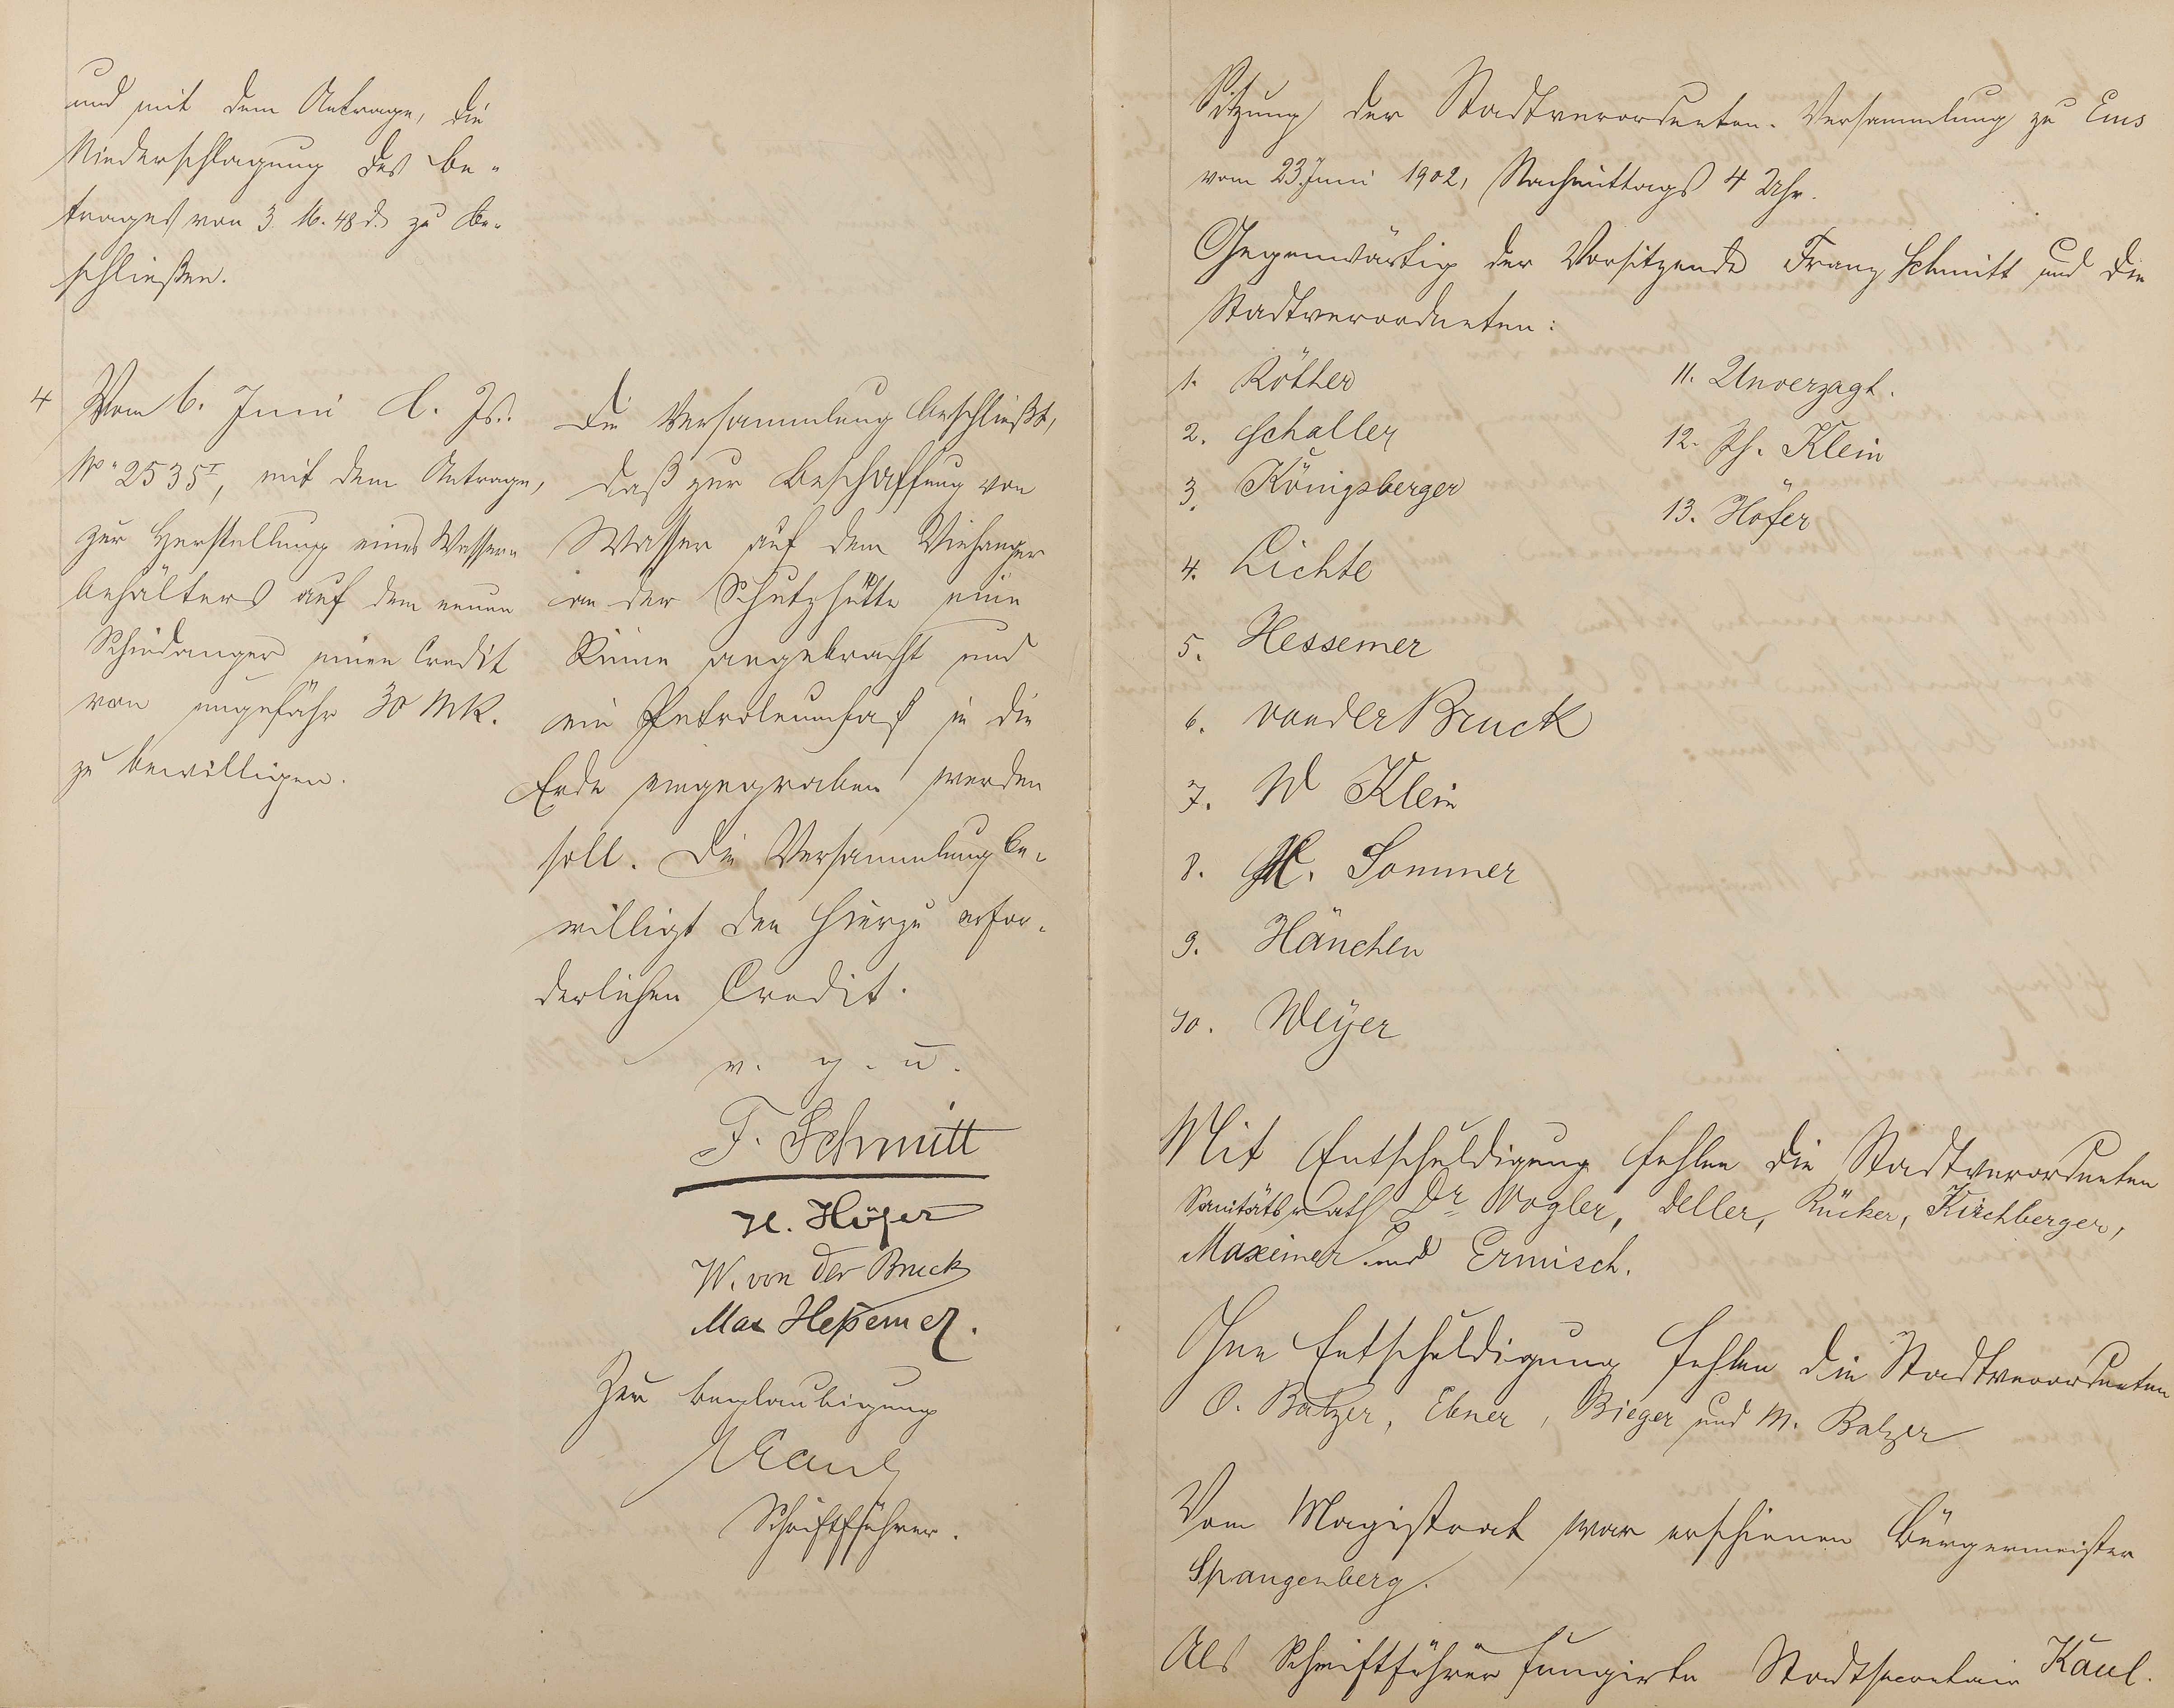 und mit dem Antrage, die
Niederschlagung des Be-
trages von 3 M. 48 d. zu be-
schließen.
4 Vom 6. Juni d. Js.
No 2535 I, mit dem Antrage,
zur Herstellung eines Wasser-
behälters auf dem neuen
Schindanger einen Credit
von ungefähr 30 Mk.
zu bewilligen.
Die Versammlung beschließt,
daß zur Beschaffung von
Wasser auf dem Viehanger
an der Schutzhütte eine
Rinne angebracht und
ein Petroleumfaß in die
Erde eingegraben werden
soll. Die Versammlung be-
willigt den hierzu erfor-
derlichen Credit.
v. g. u.
F. Schmitt
H. Höfer
W. von der Bruck
Max Heßemer.
Zur Beglaubigung
Kaul
Schriftführer.
Sitzung der Stadtverordneten-Versammlung zu Ems
vom 23. Juni 1902, Nachmittags 4 Uhr.
Gegenwärtig der Vorsitzende Franz Schmitt und die
Stadtverordneten:
1. Röther
2. Schaller
3. Königsberger
4. Lichte
5. Hessemer
6. von der Bruck
7. W Klein
8. H. Sommer
9. Hänchen
10. Weÿer
11. Unverzagt.
12. Ph. Klein
13. Höfer
Mit Entschuldigung fehlen die Stadtverordneten
Sanitätsrath Dr Vogler, Deller, Rücker, Kirchberger,
Maxeiner und Ermisch.
Ohne Entschuldigung fehlen die Stadtverordneten
O. Balzer, Ebner, Bieger und M. Balzer
Vom Magistrat war erschienen Bürgermeister
Spangenberg.
Als Schriftführer fungirte Stadtsecretair Kaul.